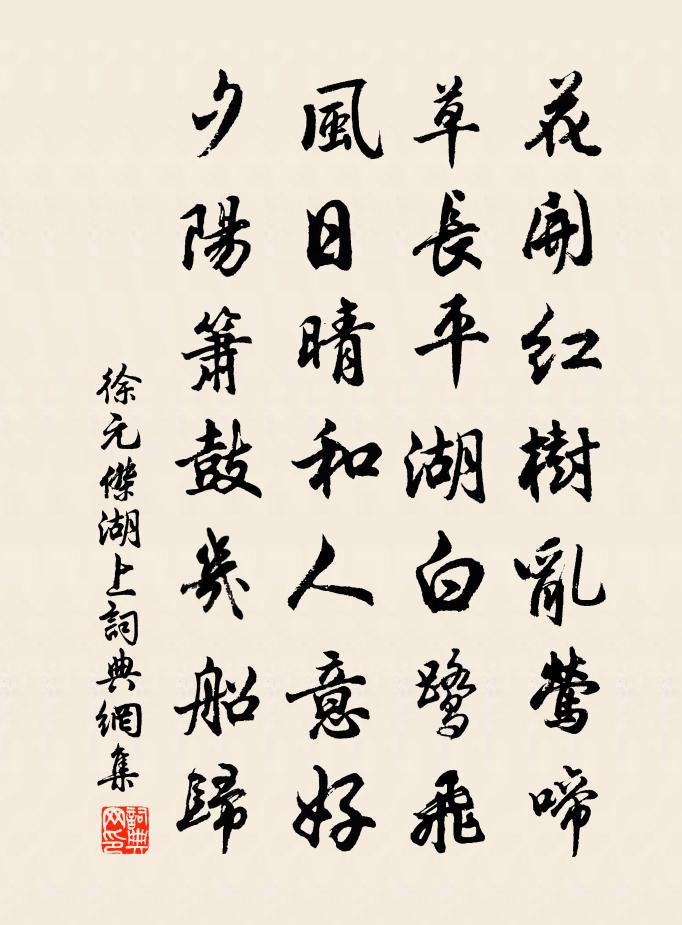 花開紅樹亂鶯啼
草長平湖白鷺飛
風日晴和人意好
夕陽簫鼓幾船歸
徐元傑湖上詞典網集
詞典網印